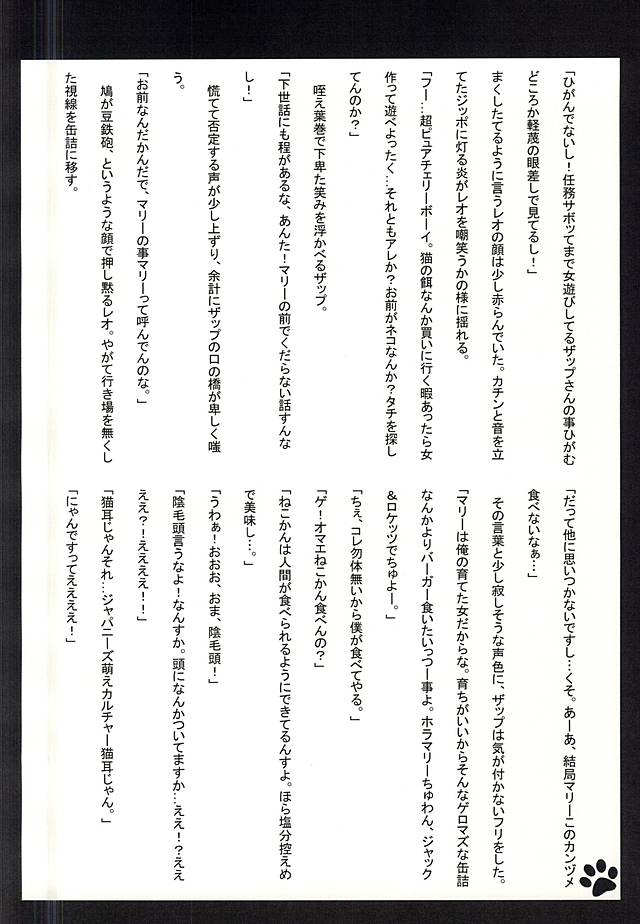 「ひがんでないし！任務サボッてまで女遊びしてるザップさんの事ひがむ
どころか軽蔑の眼差しで見てるし！」
まくしたてるように言うレオの顔は少し赤らんでいた。カチンと音を立
てたジッポに灯る炎がレオを嘲笑うかの様に揺れる。
「フー…超ピュアチェリーボーイ。猫の餌なんか買いに行く暇あったら女
作って遊べよったく…それともアレか？お前がネコなんか？タチを探し
てんのか？」
咥え葉巻で下卑た笑みを浮かべるザップ。
「下世話にも程があるな、あんた！マリーの前でくだらない話すんな
し！」
慌てて否定する声が少し上ずり、余計にザップの口の橋が卑しく嗤
う。
「お前なんだかんだで、マリーの事マリーって呼んでんのな。」
鳩が豆鉄砲、というような顔で押し黙るレオ。やがて行き場を無くし
た視線を缶詰に移す。
「だって他に思いつかないですし…くそ。あーあ、結局マリーこのカンヅメ
食べないなぁ…」
その言葉と少し寂しそうな声色に、ザップは気が付かないフリをした。
「マリーは俺の育てた女だからな。育ちがいいからそんなゲロマズな缶詰
なんかより、バーガー食いたいっつー事よ。ホラマリーちゅわん、ジャック
＆ロケッツでちゅよー。」
「ちぇ、コレ勿体無いから僕が食べてやる。」
「ゲ！オマエねこかん食べんの？」
「ねこかんは人間が食べられるようにできてるんすよ。ほら塩分控えめ
で美味し…。」
「うわぁ！おおお、おま、陰毛頭！」
「陰毛頭言うなよ！なんすか。頭になんかついてますか…ええ！？ええ
ええ？！ええええ！！」
「猫耳じゃんそれ…ジャパニーズ萌えカルチャー猫耳じゃん。」
「にゃんですってえええ！」